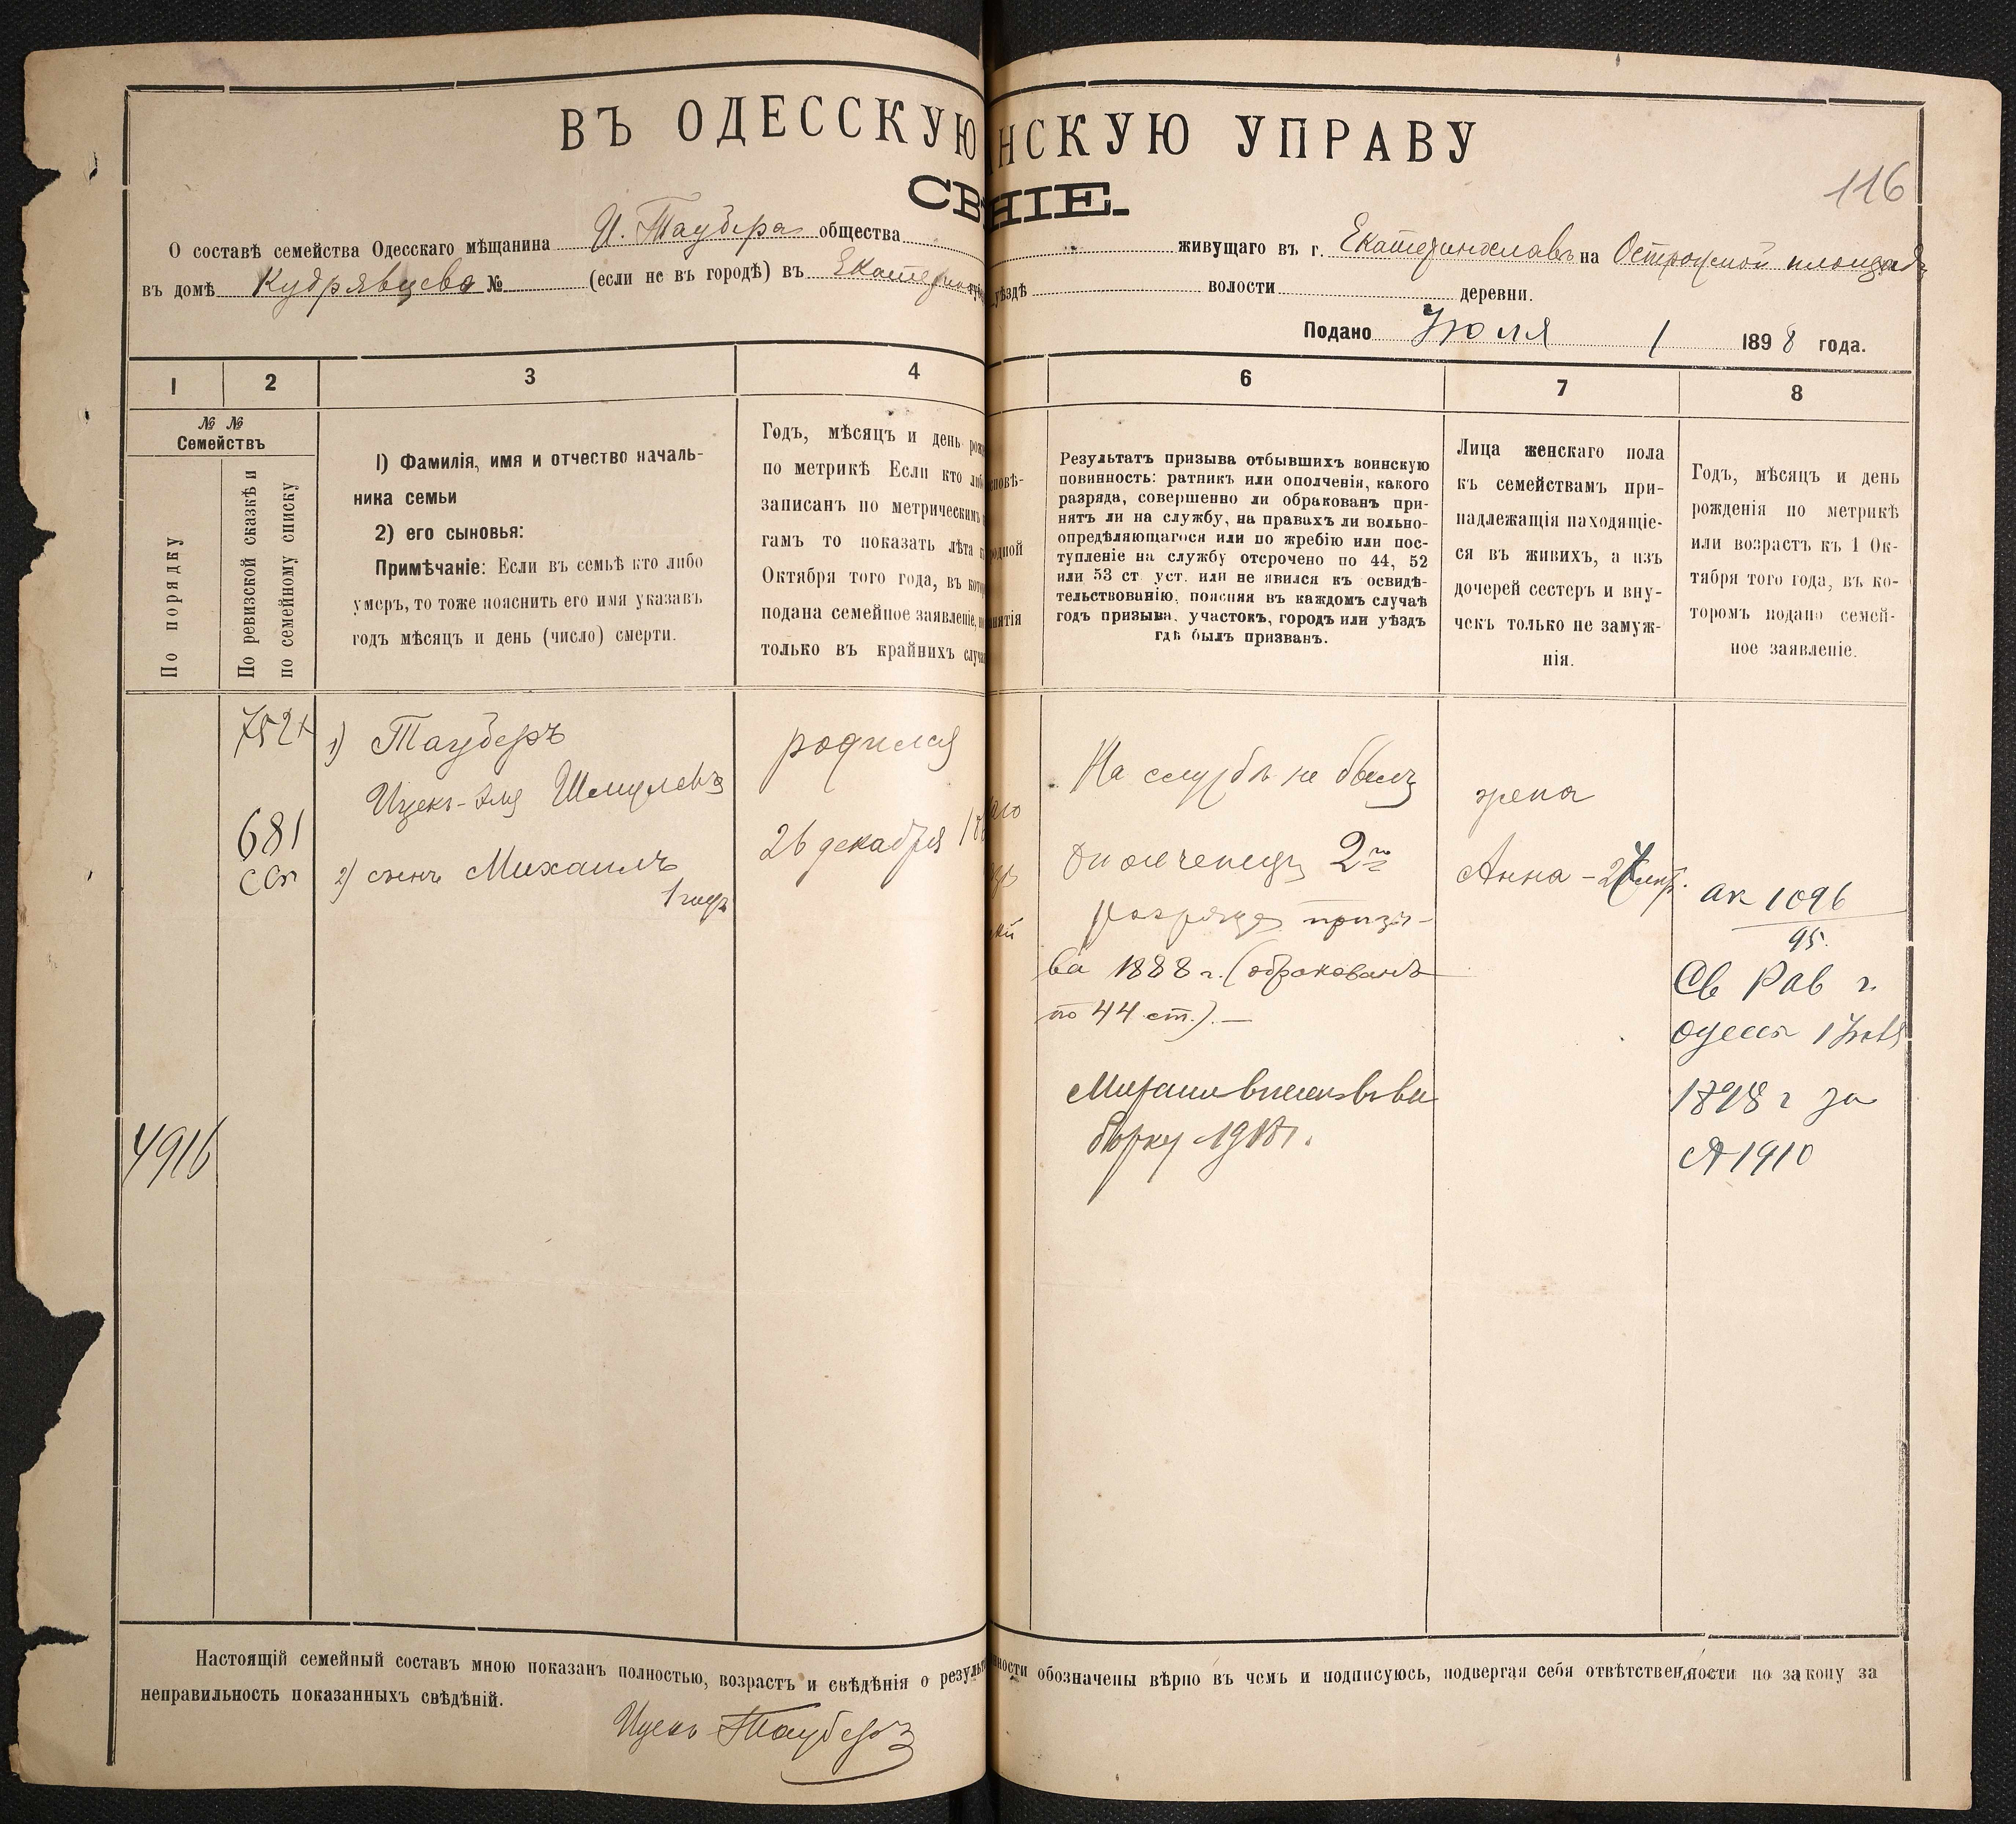 ВЪ ОДЕССКУЮ НСКУЮ УПРАВУ
СВ НІЕ.
116
О составѣ семейства Одесскаго мѣщанина И. Таубера общества живущаго въ г. Екатеринославъ на Острожной площади
въ домѣ Кудрявцева № (если не въ городѣ) въ Екатерино уѣздѣ волости деревни.
Подано Іюля 1 1898 года.
1 2 3 4 6 7 8
№ № Семействъ
По порядку
По ревизской сказкѣ и
по семейному списку
1) Фамилія, имя и отчество началь-
ника семьи
2) его сыновья:
Примѣчаніе: Если въ семьѣ кто либо
умеръ, то тоже пояснить его имя указавъ
годъ мѣсяцъ и день (число) смерти.
Годъ, мѣсяцъ и день рожд
по метрикѣ Если кто либо
записанъ по метрическимъ
гамъ то показать лѣта
Октября того года, въ кото
подана семейное заявленіе,
только въ крайнихъ случа
сповѣ-
одной
нятія
Результатъ призыва отбывшихъ воинскую
повинность: ратникъ или ополченія, какого
разряда, совершенно ли обракованъ при-
нятъ ли на службу, на правахъ ли вольно-
опредѣляющагося или по жребію или пос-
тупленіе на службу отсрочено по 44, 52
или 53 ст уст. или не явился къ освидѣ-
тельствованію, поясняя въ каждомъ случаѣ
годъ призыва, участокъ, городъ или уѣздъ
гдѣ былъ призванъ.
Лица женскаго пола
къ семействамъ при-
надлежащія находящіе-
ся въ живихъ, а изъ
дочерей сестеръ и вну-
чекъ только не замуж-
нія.
Годъ, мѣсяцъ и день
рожденія по метрикѣ
или возрастъ къ 1 Ок-
тября того года, въ ко-
торомъ подано семей-
ное заявленіе.
752
681
Сп
4916
1) Тауберъ
Ицекъ-Эля Шмулевъ
2) сынъ Михаилъ
1 годъ
родился
26 декабря 18
аго
кій
На службѣ не былъ
Ополченецъ 2го
разряда призы-
ва 1888 г. (обракованъ
по 44 ст.). —
жена
Анна - 27 лѣтъ.
ак 1096
95.
Св Рав г.
Одессы 1 Іюля
1898 г за
№ 1910
Настоящій семейный составъ мною показанъ полностью, возрастъ и свѣдѣнія о результ ности обозначены вѣрно въ чемъ и подписуюсь, подвергая себя отвѣтственности по закону за
неправильность показанныхъ свѣдѣній.
Ицекъ Тауберъ